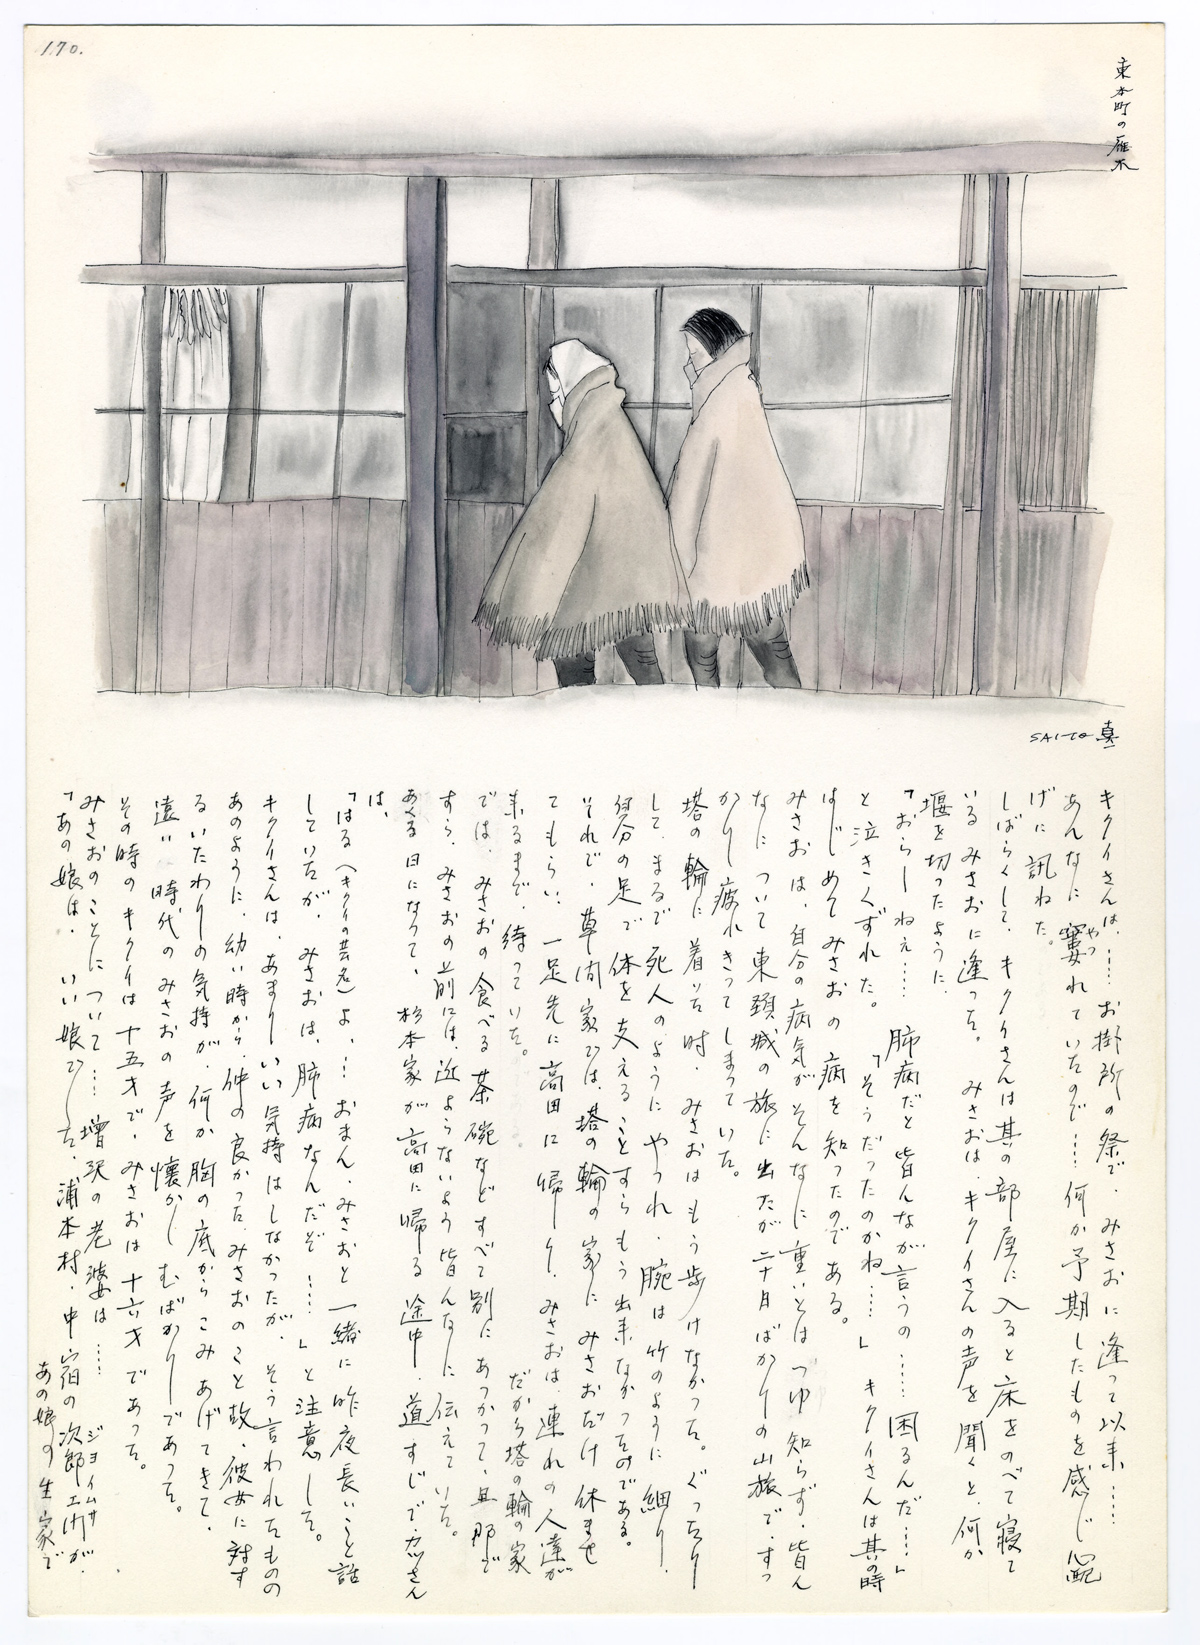 170.
東本町の雁木
SAITO 真一
キクイさんは、…… お掛所の祭で、みさおに逢って以来……
あんなに窶れていたので…… 何か予期したものを感じ心配
やつ
げに訊ねた。
しばらくして、キクイさんは其の部屋に入ると床をのべて寝て
いるみさおに逢った。 みさおは、キクイさんの声を聞くと、何か
堰を切ったように、
「おらーねぇ…… 肺病だと皆んなが言うの……困るんだ……」
と泣きくずれた。 「そうだったのかね……」 キクイさんは其の時
はじめてみさおの病を知ったのである。
みさおは、自分の病気がそんなに重いとはつゆ知らず、皆ん
なについて東頸城の旅に出たが二十日ばかりの山旅で、すっ
かり疲れきってしまっていた。
塔の輪に着いた時、みさおはもう歩けなかった。ぐったり
して、まるで死人のようにやつれ、腕は竹のように細り、
自分の足で体を支えることすらもう出来なかったのである。
それで、草間家では、塔の輪の家にみさおだけ休ませ
てもらい、一足先に高田に帰り、みさおは、連れの人達が
来るまで、待っていた。 だから塔の輪の家
では、みさおの食べる茶碗などすべて別にあつかって、旦那で
すら、みさおの前には、近ようないよう皆んなに伝えていた。
あくる日になって、杉本家が高田に帰る途中、道すじで、カツさん
は、
「はる(キクイの芸名)よ、…… おまん、みさおと一緒に昨夜長いこと話
していたが、みさおは、肺病なんだぞ……」と注意した。
キクイさんは、あまりいい気持はしなかったが、そう言われたものの
あのように、幼い時から、仲の良かった、みさおのこと故、彼女に対す
るいたわりの気持が、何か胸の底からこみあげてきて、
遠い時代のみさおの声を懐かしむばかりであった。
その時のキクイは十五才で、みさおは十六才であった。
みさおのことについて…… 増沢の老婆は……
「あの娘は、いい娘でした、浦本村、中宿の次郎エ門が、
ジヨイムサ
あの娘の生家で